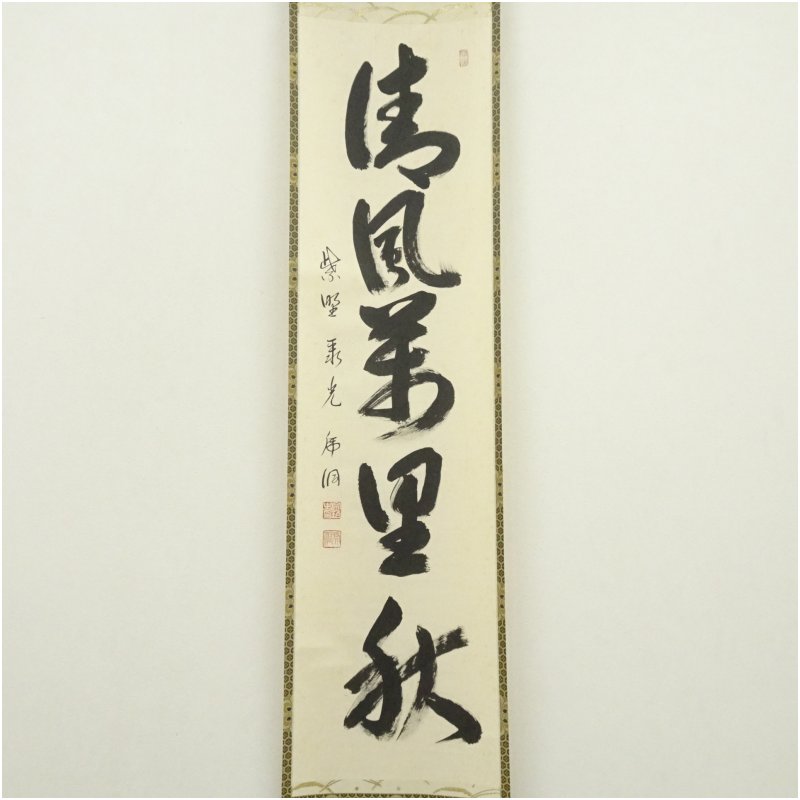 清風萬里秋
紫野聚光 虎洞